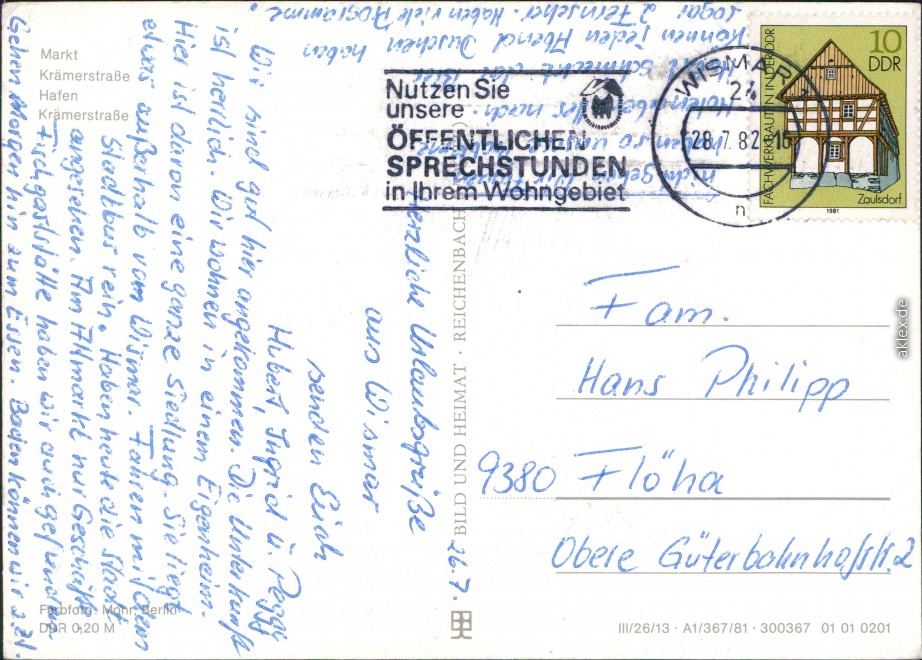 Markt
Krämerstraße
Hafen
Krämerstraße
Herzliche Urlaubsgrüße
aus Wismar
senden Euch
Hubert, Ingrid u. Peggy
Wir sind gut hier angekommen. Die Unterkunft
ist herrlich. Wir wohnen in einem Eigenheim.
Hier ist davon eine ganze Siedlung. Sie liegt
etwas außerhalb von Wismar. Fahren mit dem
Stadtbus rein. Haben heute die Stadt
angesehen. Am Altmarkt nur Geschäfte
Fischgaststätte haben wir auch gefunden.
Gehen Morgen hin zum Essen. Baden können wir z.Zt.
Hafenbar
schmeckt das Bier
Können jeden Abend Duschen haben
sogar 2 Fernseher. Haben viele Programme.
26.7.
Farbfoto: Mohr, Berlin
DDR 0,20 M
BILD UND HEIMAT · REICHENBACH
Nutzen Sie
unsere
ÖFFENTLICHEN
SPRECHSTUNDEN
in Ihrem Wohngebiet
WISMAR
24
28.7.82-16
n
10
DDR
FACHWERKBAUTEN IN DER DDR
Zaulsdorf
1981
Fam.
Hans Philipp
9380 Flöha
Obere Güterbahnhofstr. 2
III/26/13 · A1/367/81 · 300367 01 01 0201
aklex.de